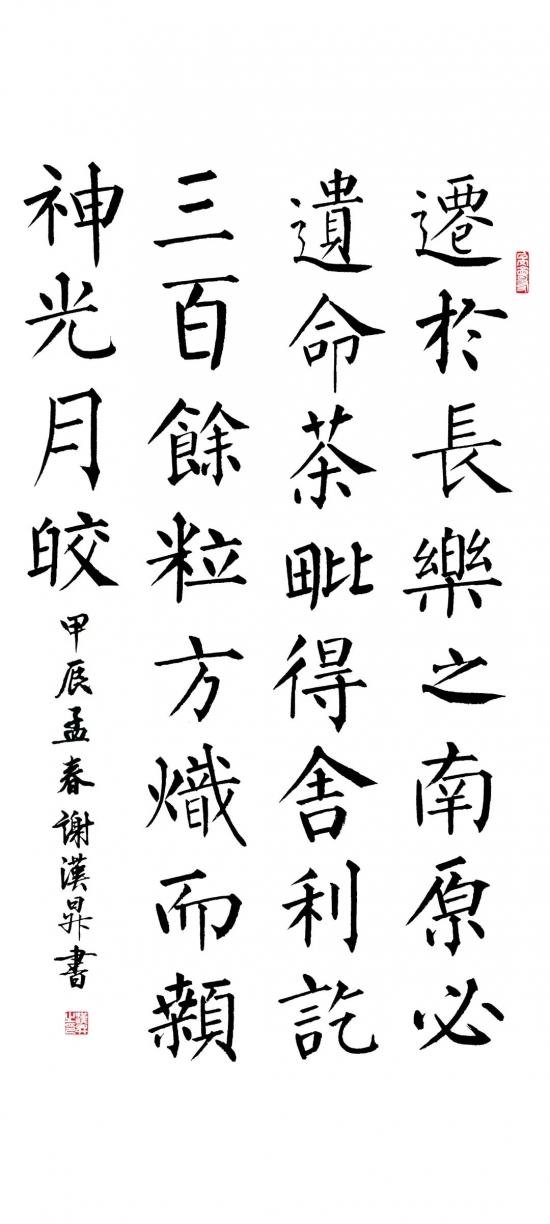 遷於長樂之南原必
遺命茶毗得舍利訖
三百餘粒方熾而顙
神光月皎
甲辰孟春謝漢昇書